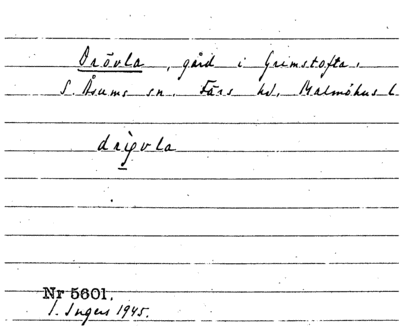 Drövla, gård i Grimstofta,
S. Åsums sn. Färs hd, Malmöhus l.
Nr 5601.
I. Ingers 1945.